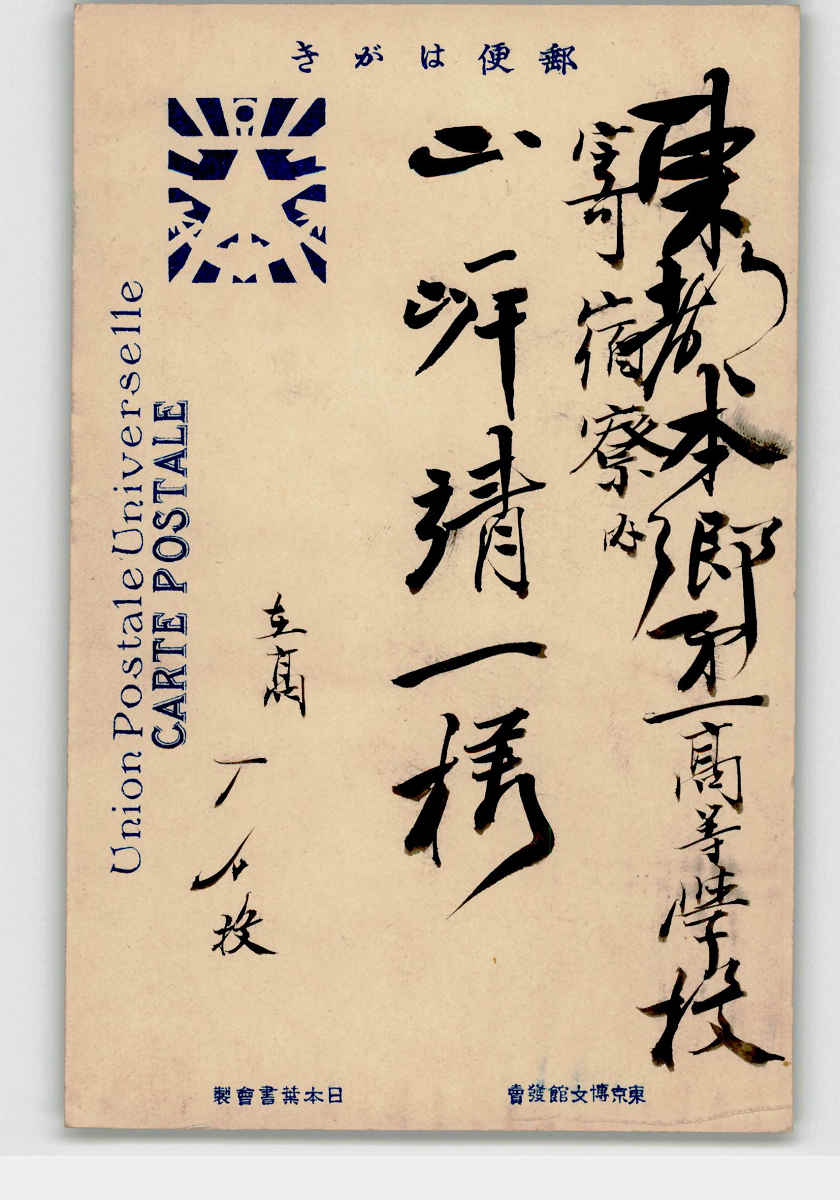 郵便はがき
東都本郷第一高等學校
寄宿寮内
山岸靖一様
在高
Union Postale Universelle
CARTE POSTALE
東京博文館發賣
日本葉書會製